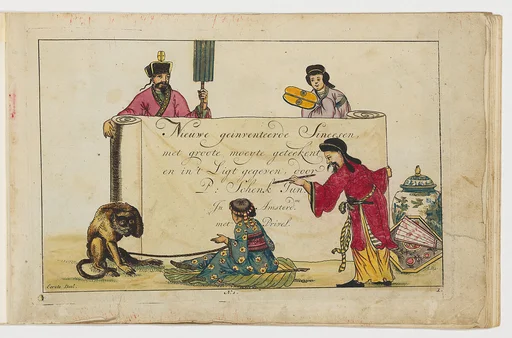 Nieuwe geinventeerde Sineesen,
met groote moeyte geteekent
en in't Ligt gegeven, door
P: Schenk Jun:
In Amsterd.m
met Privel.
Eerste Deel.
N.o 1.
1.